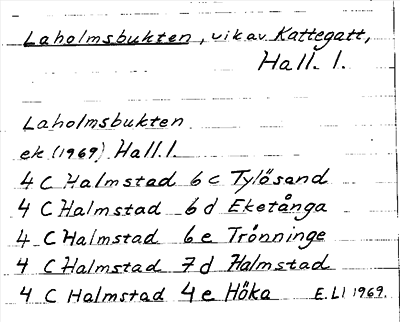 Laholmsbukten, vik av Kattegatt,
Hall. l.
Laholmsbukten
ek (1969) Hall. l.
4 C Halmstad 6 c Tylösand
4 C Halmstad 6 d Eketånga
4 C Halmstad 6 e Trönninge
4 C Halmstad 7 d Halmstad
4 C Halmstad 4 e Höka E. LI 1969.